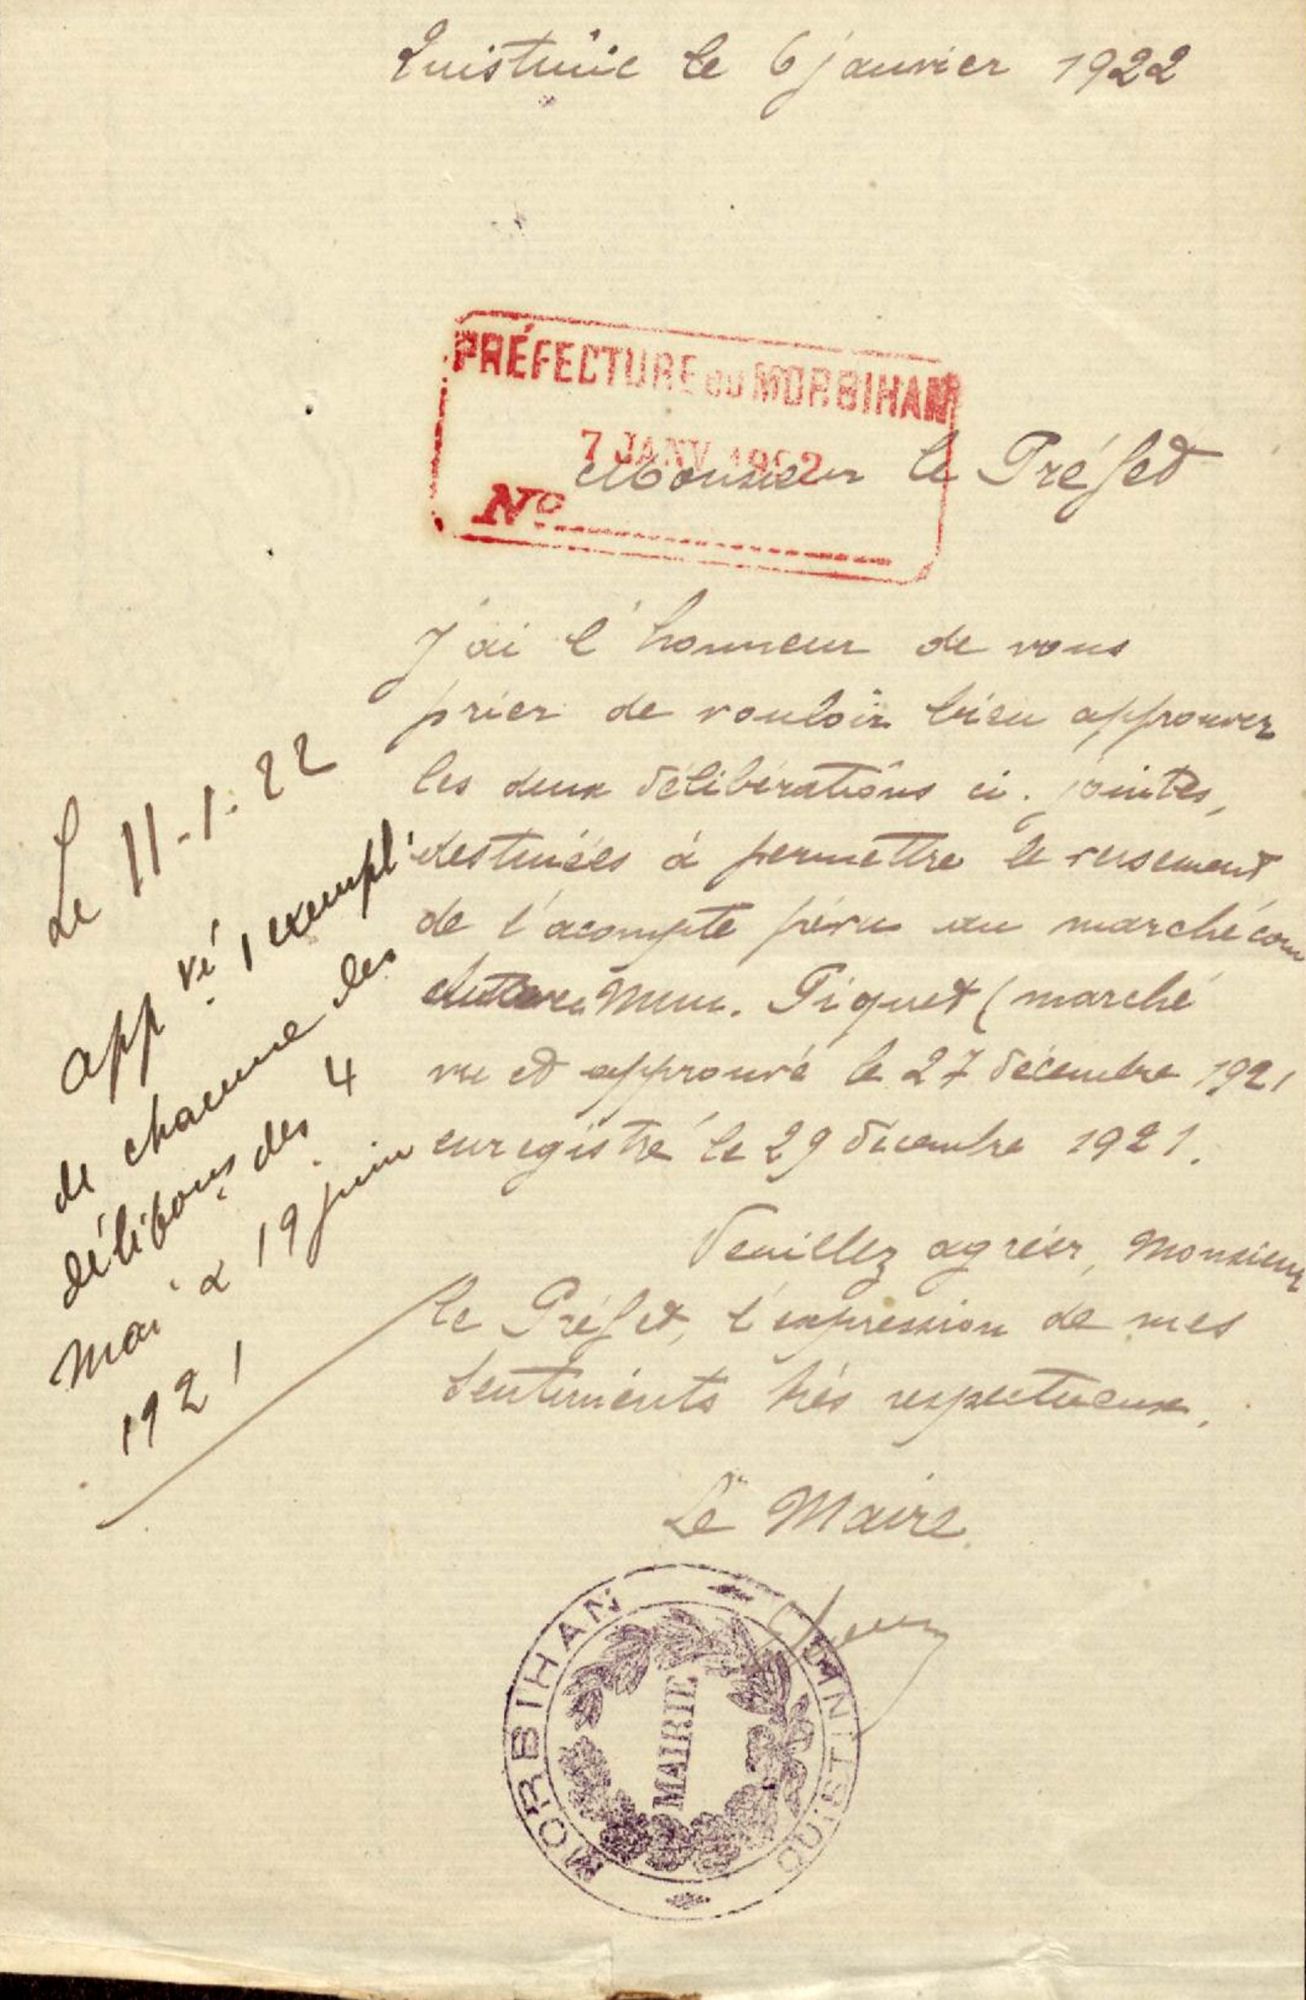 Quistinic le 6 janvier 1922
PRÉFECTURE DU MORBIHAN
7 JANV 1922
No
Monsieur le Préfet
J'ai l'honneur de vous
prier de vouloir bien approuver
les deux délibérations ci-jointes,
destinées à permettre le versement
de l'acompte prévu au marché
Mme. Piquet (marché
vu et approuvé le 27 décembre 1921
enregistré le 29 décembre 1921.
Veuillez agréer, Monsieur
le Préfet, l'expression de mes
sentiments très respectueux.
Le Maire
Le 11-1-22
appvé 1 exempl.
de chacune des
délibons des 4
mai & 19 juin
1921
MORBIHAN
MAIRIE
QUISTINIC